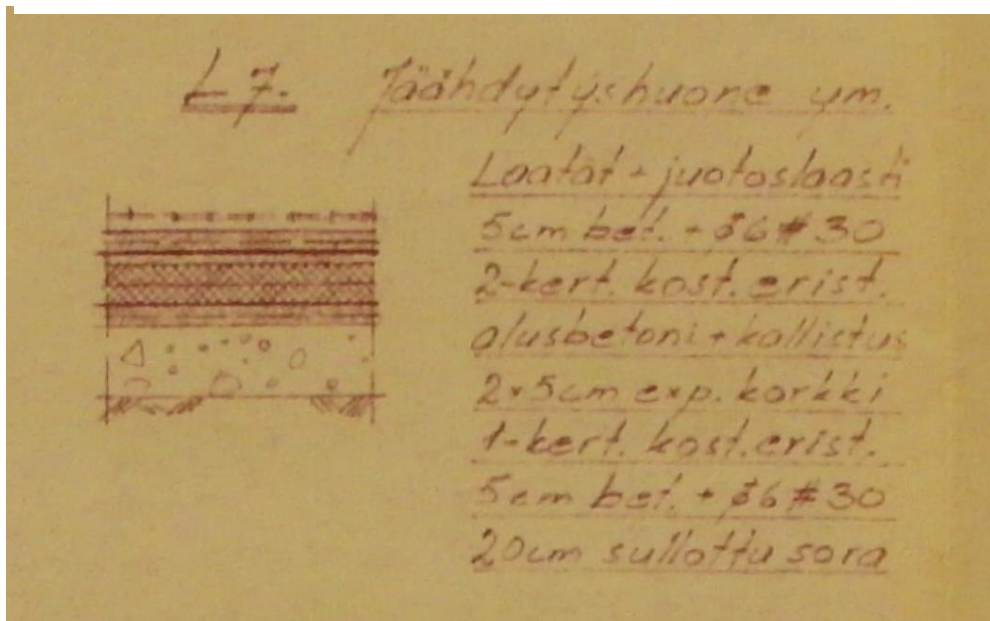 L 7. Jäähdytyshuone ym.
Laatat + juotoslaasti
5cm bet. + ø6 # 30
2-kert. kost. erist.
alusbetoni + kallistus
2×5cm exp. korkki
1-kert. kost. erist.
5cm bet. + ø6 # 30
20cm sullottu sora